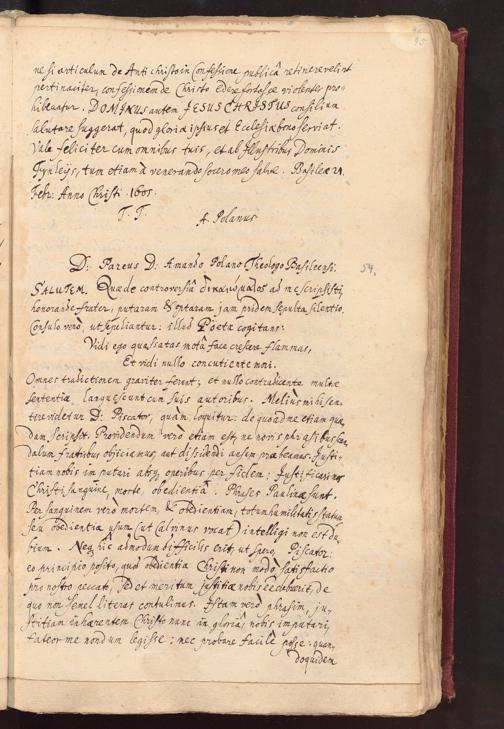 95
ne si articulum de Antichristo in Confessione publicâ retinere velint
pertinaciter, confessionem de Christo edere forlosce violenter pro-
hibeantur. DOMINUS autem JESUS CHRISTUS consilium
salutare suggerat, quod gloriæ ipsius et Ecclesiæ bono serviat.
Vale feliciter cum omnibus tuis, et ab Illustribus Dominis
Tynleijs, tum etiam à venerando socero meo salve. Basileæ 21.
Febr. Anno Christi 1601.
T. T.
A. Polanus
D. Pareus D. Amando Polano Theologo Basileensi. 54.
SALUTEM. Quæ de controversiâ δικαιώματος ad me scripsisti,
honorande frater, putaram & optaram jam pridem sepulta silentio.
Consulo verò, ut sepeliantur: illud Poetæ cogitans:
Vidi ego quassatas motâ face crescere flammas,
Et vidi nullo concutiente mori.
Omnes traductionem graviter ferunt; et nullo contradicente multæ
sententiæ languescunt cum suis autoribus. Melius mihi sen-
tire videtur D. Piscator, quàm loquitur: de quo ad me etiam qua
dam scripsit. Providendum verò etiam est, ne novis phrasibus scan
dalum fratribus objiciamus aut dissidendi ansam præbeamus. Justi-
tiam nobis imputari absq; operibus per fidem: Justificari nos
Christi sanguine, morte, obedientiâ. Phrases Paulinæ sunt.
Per sanguinem verò mortem, & obedientiam, totum humilitatis statum
seu obedientiæ usum (ut Calvinus vocat) intelligi non est du
bium. Neq; hîc admodum difficilis erit, ut spero, Piscator:
eo principio posito, quod obedientia Christi non modò satisfactio
pro nostro peccato, sed et meritum justitiæ nobis ê cœlo erit, de
quo non semel literas contulimus. Istam verò phrasim, ju-
stitiam inhærentem Christo nunc in gloriâ, nobis imputari,
fateor me nondum legisse: nec probare facilè posse: quan
doquidem